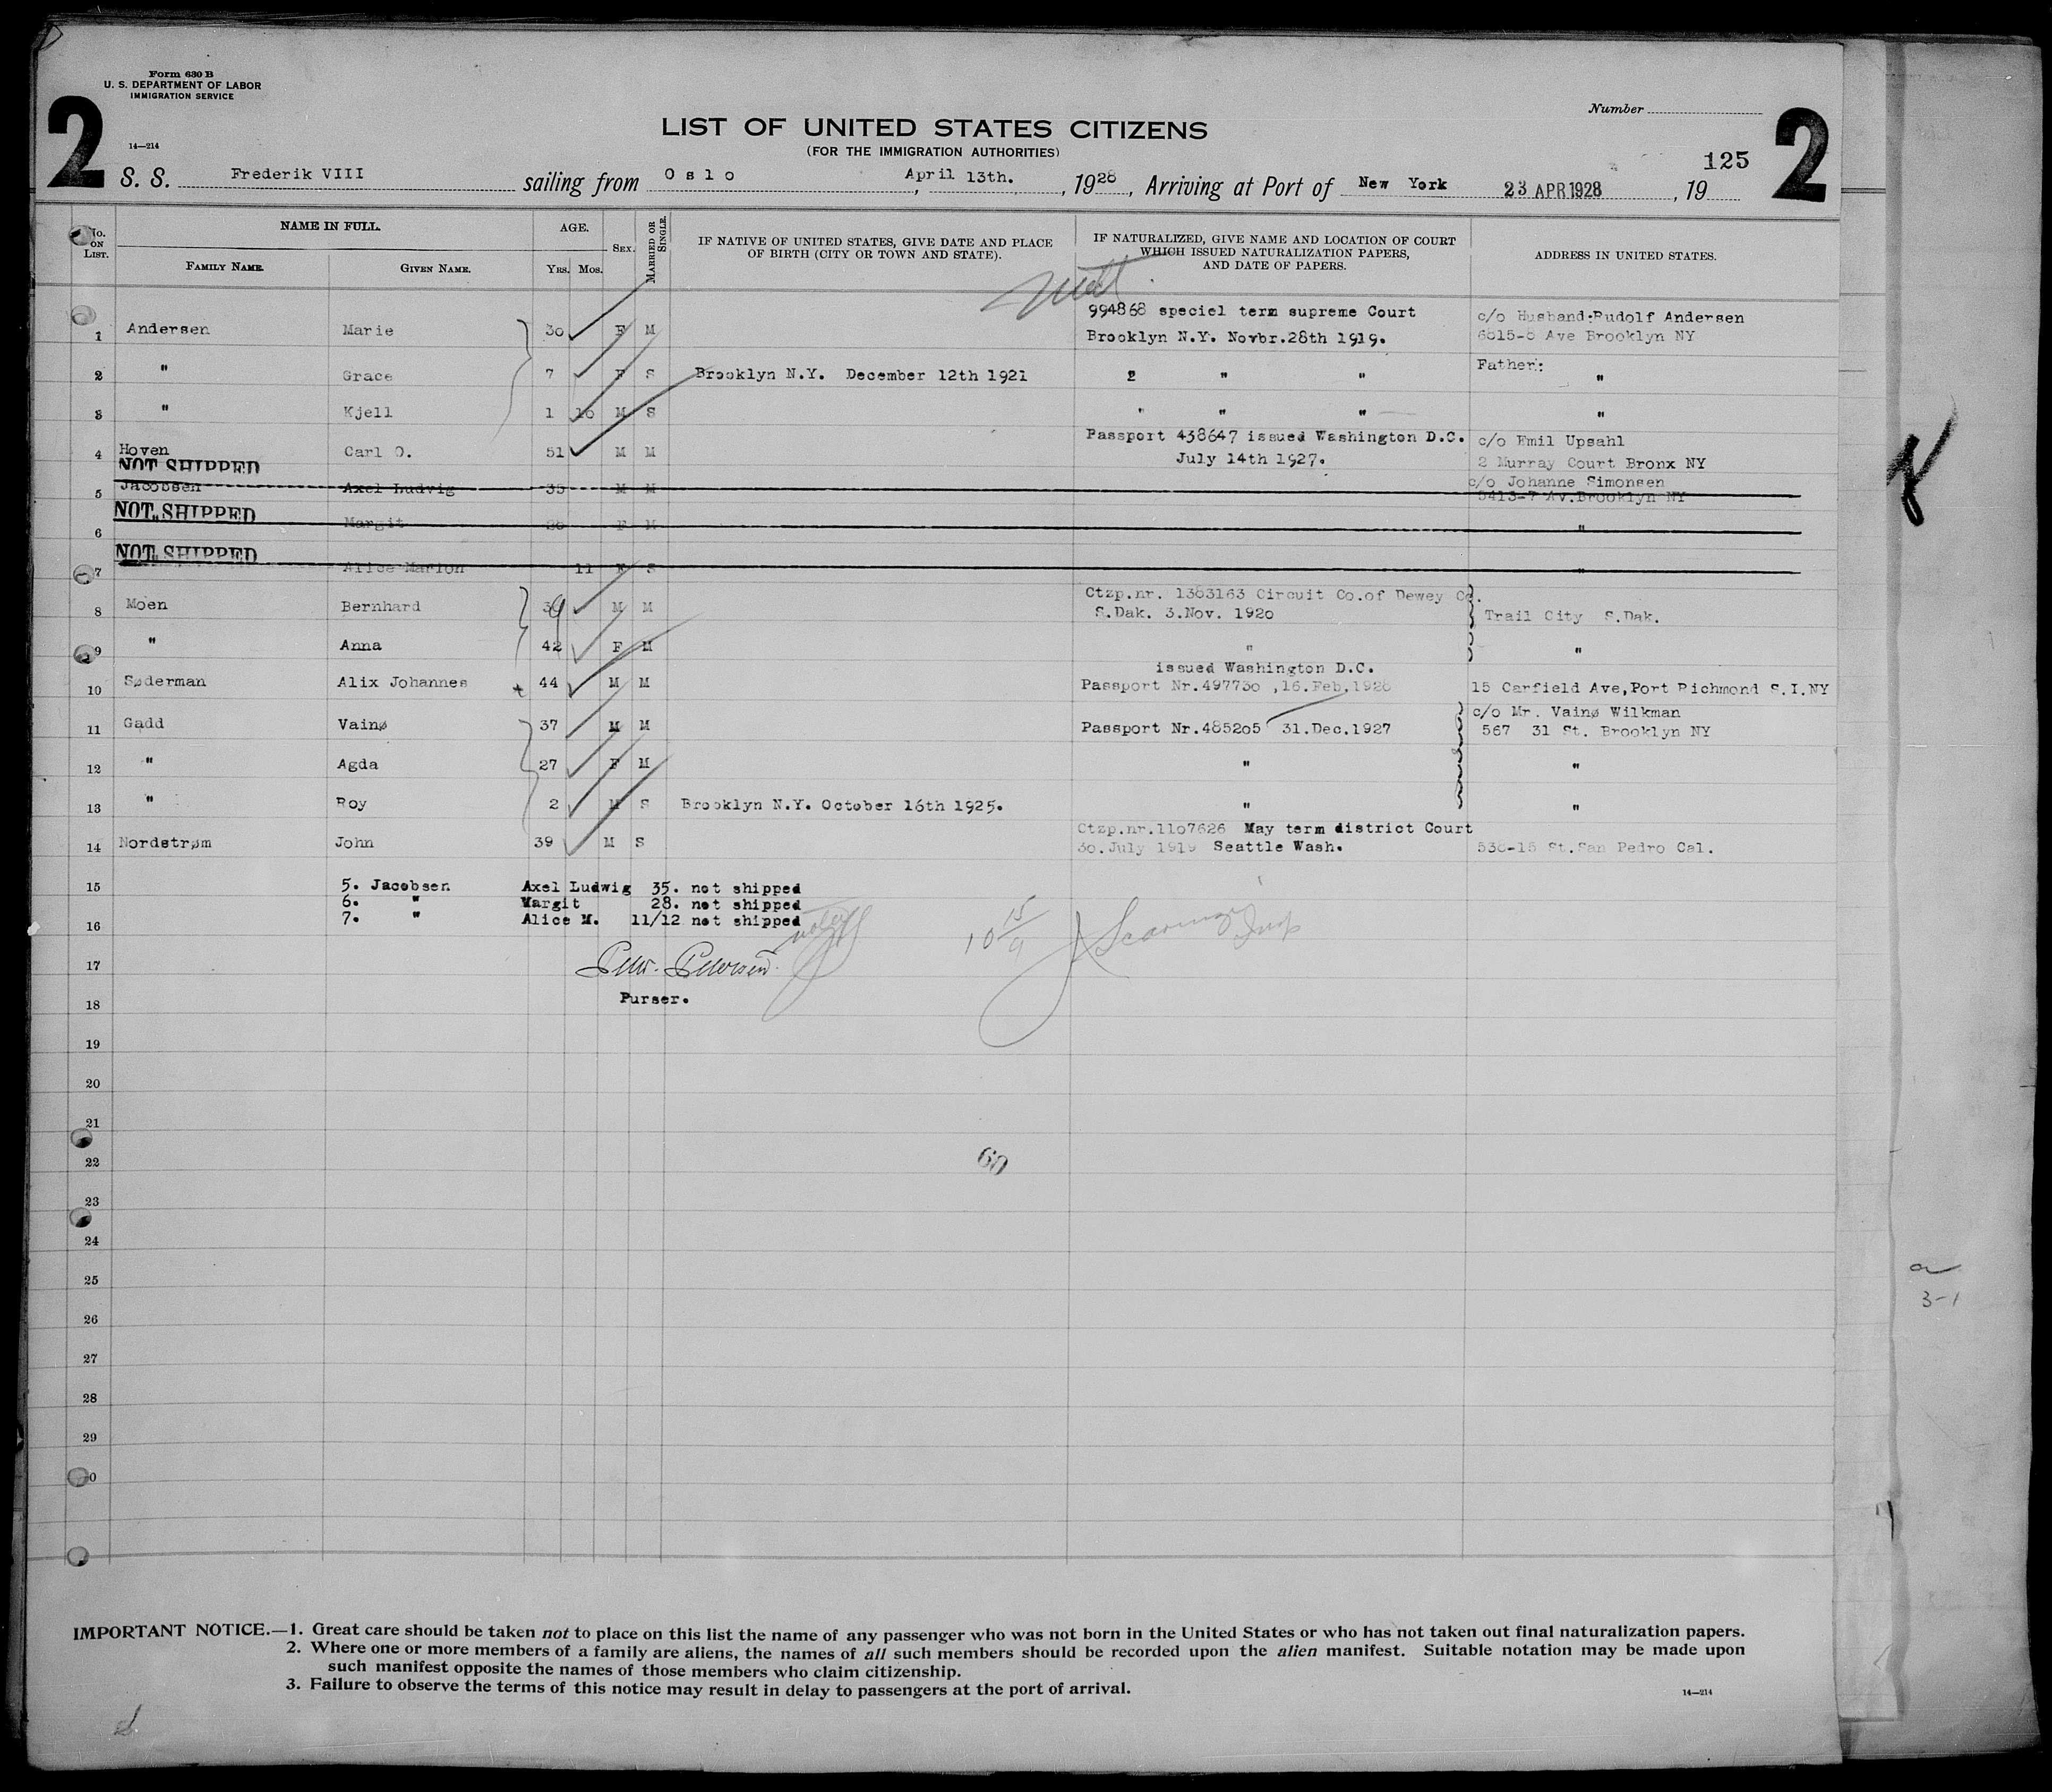 Form 630 B
U. S. DEPARTMENT OF LABOR
IMMIGRATION SERVICE
2
14—214
LIST OF UNITED STATES CITIZENS
(FOR THE IMMIGRATION AUTHORITIES)
Number
125
2
S. S. Frederik VIII sailing from Oslo, April 13th., 1928, Arriving at Port of New York 23 APR 1928, 19
No. ON LIST.
NAME IN FULL.
FAMILY NAME.
GIVEN NAME.
AGE.
YRS. MOS.
SEX.
MARRIED OR SINGLE.
IF NATIVE OF UNITED STATES, GIVE DATE AND PLACE
OF BIRTH (CITY OR TOWN AND STATE).
IF NATURALIZED, GIVE NAME AND LOCATION OF COURT
WHICH ISSUED NATURALIZATION PAPERS,
AND DATE OF PAPERS.
ADDRESS IN UNITED STATES.
994868 speciel term supreme Court c/o Husband:Rudolf Andersen
1 Andersen Marie 30 F M Brooklyn N.Y. Novbr.28th 1919. 6815-8 Ave Brooklyn NY
Father:
2 " Grace 7 F S Brooklyn N.Y. December 12th 1921 2 " " "
3 " Kjell 1 10 M S " " " "
Passport 438647 issued Washington D.C. c/o Emil Upsahl
4 Hoven Carl O. 51 M M July 14th 1927. 2 Murray Court Bronx NY
NOT SHIPPED
c/o Johanne Simonsen
5 Jacobsen Axel Ludvig 35 M M 5413-7 Av.Brooklyn NY
NOT SHIPPED
6 Margit 28 F M "
NOT SHIPPED
7 Alice Marion 11 F S "
Ctzp.nr. 1383163 Circuit Co.of Dewey Co.
8 Moen Bernhard 39 M M S.Dak. 3.Nov. 1920 Trail City S.Dak.
9 " Anna 42 F M " "
issued Washington D.C.
10 Søderman Alix Johannes 44 M M Passport Nr.497730 ,16.Feb,1928 15 Garfield Ave,Port Richmond S.I.NY
c/o Mr. Vainø Wilkman
11 Gadd Vainø 37 M M Passport Nr.485205 31.Dec.1927 567 31 St. Brooklyn NY
12 " Agda 27 F M " "
13 " Roy 2 M S Brooklyn N.Y. October 16th 1925. " "
Ctzp.nr.1107626 May term district Court
14 Nordstrøm John 39 M S 30.July 1919 Seattle Wash. 536-15 St.San Pedro Cal.
15 5. Jacobsen Axel Ludwig 35. not shipped
6. " Margit 28. not shipped
16 7. " Alice M. 11/12 not shipped
10 15/9
17 Petersen.
18 Purser.
19
20
21
22
60
23
24
25
a
3-1
26
27
28
29
30
IMPORTANT NOTICE.—1. Great care should be taken not to place on this list the name of any passenger who was not born in the United States or who has not taken out final naturalization papers.
2. Where one or more members of a family are aliens, the names of all such members should be recorded upon the alien manifest. Suitable notation may be made upon
such manifest opposite the names of those members who claim citizenship.
3. Failure to observe the terms of this notice may result in delay to passengers at the port of arrival.
14—214